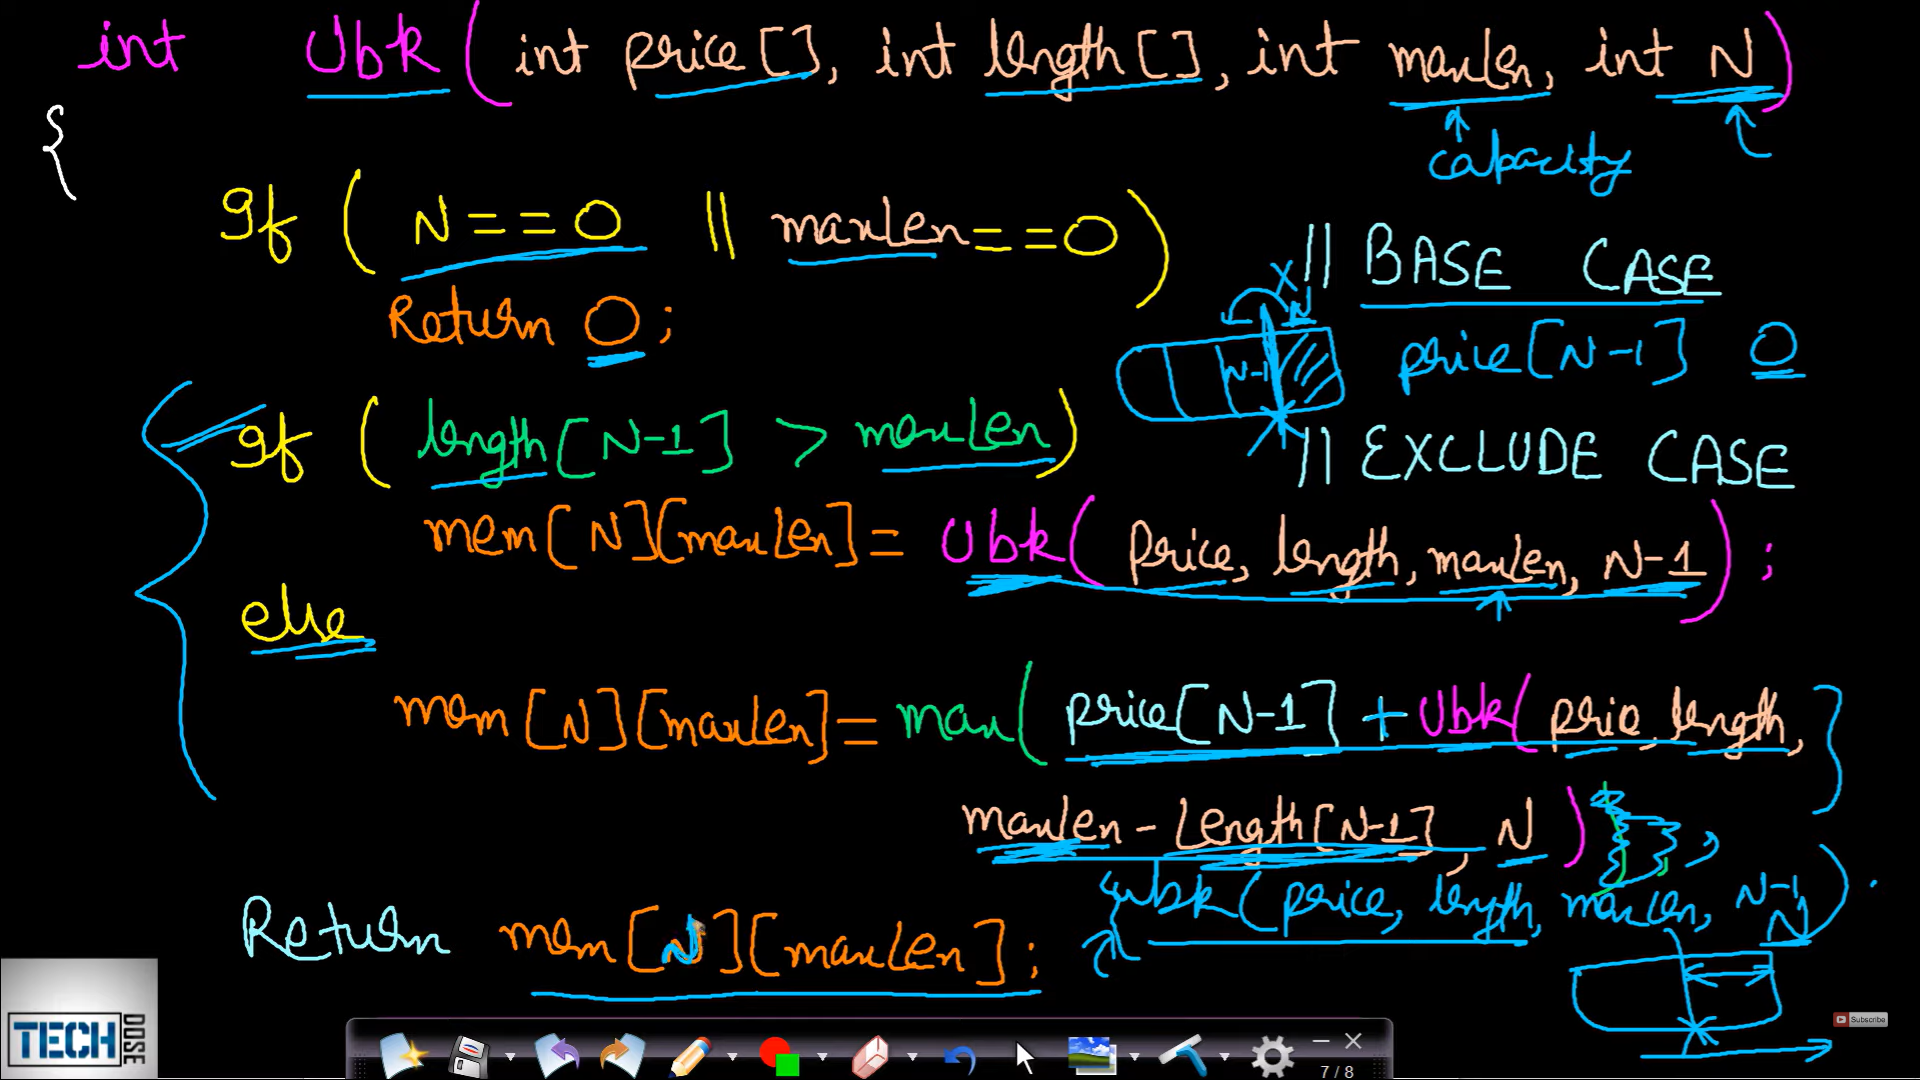 int Ubk(int price[], int length[], int maxLen, int N)
{
capacity
If (N==0 || maxLen==0) // BASE CASE
Return 0; N-1 N X price[N-1] 0
If (length[N-1] > maxLen) // EXCLUDE CASE
mem[N][maxLen]= Ubk(Price, length, maxLen, N-1);
else
mem[N][maxLen]= max(price[N-1] + Ubk(price, length,
maxLen-Length[N-1], N)
Ubk(price, length, maxLen, N-1)
N
Return mem[N][maxLen];
TECH DOSE
Subscribe
7 / 8